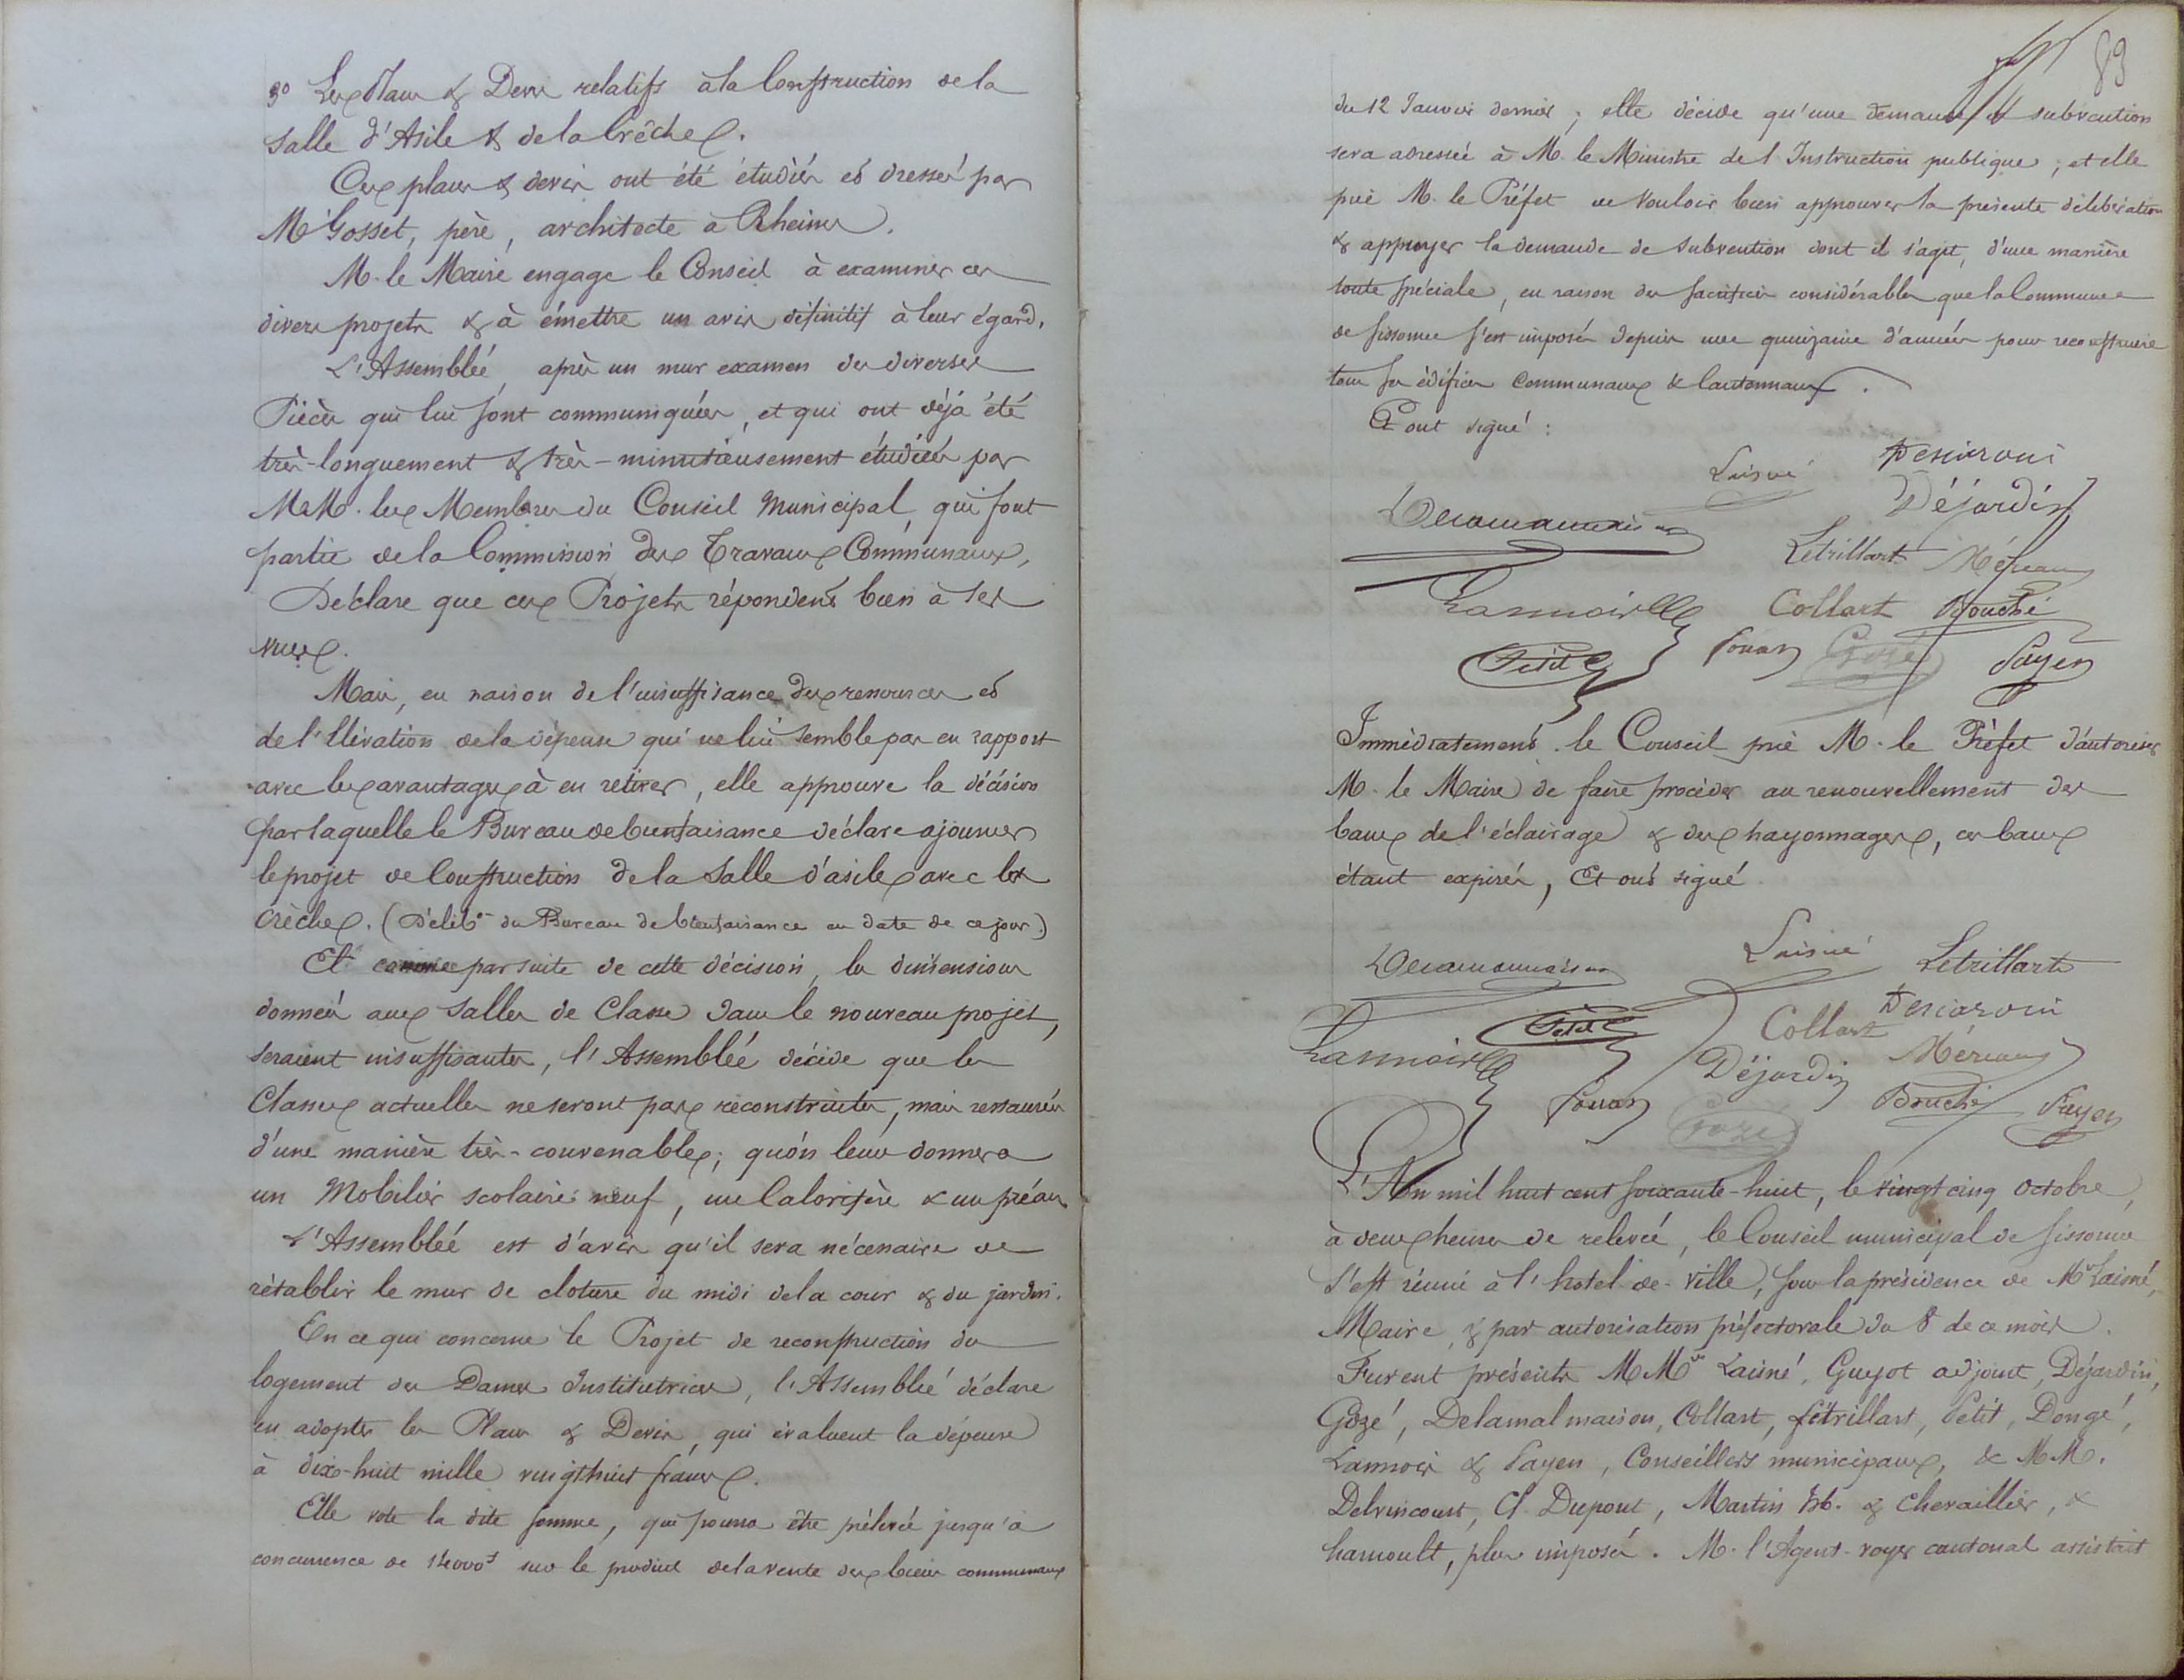 3º Les Plans & Devis relatifs à la Construction de la
salle d'Asile & de la Crèche.
Ces plans & devis ont été étudiés et dressés par
Mr Gosset, père, architecte à Rheims.
M. le Maire engage le Conseil à examiner ces
divers projets & à émettre un avis définitif à leur égard.
L'Assemblée, après un mur examen des diverses
Pièces qui lui sont communiquées, et qui ont déjà été
très-longuement & très-minutieusement étudiées par
M.M. les Membres du Conseil Municipal, qui font
partie de la Commission des Travaux Communaux,
Déclare que ces Projets répondent bien à ses
vues.
Mais, en raison de l'insuffisance des ressources et
de l'Elévation de la dépense qui ne lui semble pas en rapport
avec les avantages à en retirer, elle approuve la décision
par laquelle le Bureau de bienfaisance déclare ajourner
le projet de Construction de la Salle d'asile avec les
crèches. (Délibon du Bureau de bienfaisance en date de ce jour.)
Et comme par suite de cette décision, les dimensions
données aux Salles de Classe dans le nouveau projet,
seraient insuffisantes, l'Assemblée décide que les
Classes actuelles ne seront pas reconstruites, mais restaurées
d'une manière très-convenable; qu'on leur donnera
un Mobilier scolaire neuf, un Calorifère & un préau
L'Assemblée est d'avis qu'il sera nécessaire de
rétablir le mur de cloture du midi de la cour & du jardin.
En ce qui concerne le Projet de reconstruction du
logement des Dames Institutrices, l'Assemblée déclare
en adopter les Plans & Devis, qui évaluent la dépense
à dix-huit mille vingt huit francs.
Elle vote la dite somme, qui pourra être prélevée jusqu'à
concurrence de 14000f sur le produit de la vente des biens communaux
83
du 12 Janvier dernier; elle décide qu'une demande de subvention
sera adressée à M. le Ministre de l'Instruction publique; et elle
prie M. le Préfet de vouloir bien approuver la présente délibération
& appuyer la demande de subvention dont il s'agit, d'une manière
toute spéciale, en raison des sacrifices considérables que la Commune
de Sissonne s'est imposés depuis une quinzaine d'années pour reconstruire
tous ses édifices Communaux & Cantonnaux.
Et ont signé:
Laisné
Delamalmaison Déjardin
Létrillart Méreau
Lannois Collart Bouché
Petit Gozé Payen
Immédiatement, le Conseil prie M. le Préfet d'autoriser
M. le Maire de faire procéder au renouvellement des
baux de l'éclairage & des hayonnages, ces baux
étant expirés, Et ont signé
Delamalmaison Laisné Létrillart
Petit Collart
Lannois Déjardin Méreau
Gozé Bouché Payen
L'An mil huit cent soixante-huit, le vingt cinq octobre,
à deux heures de relevée, le Conseil municipal de Sissonne
s'est réuni à l'hotel-de-ville, sous la présidence de Mr Laisné,
Maire, & par autorisation préfectorale du 8 de ce mois.
Furent présents M.Mrs Laisné, Guyot adjoint, Déjardin,
Gozé, Delamalmaison, Collart, Létrillart, Petit, Dongé,
Lannois & Payen, Conseillers municipaux, & M.M.
Delvincourt, Cl. Dupont, Martin & Chevaillier, &
hanoult, plus imposés. M. l'Agent-voyer cantonal assistait